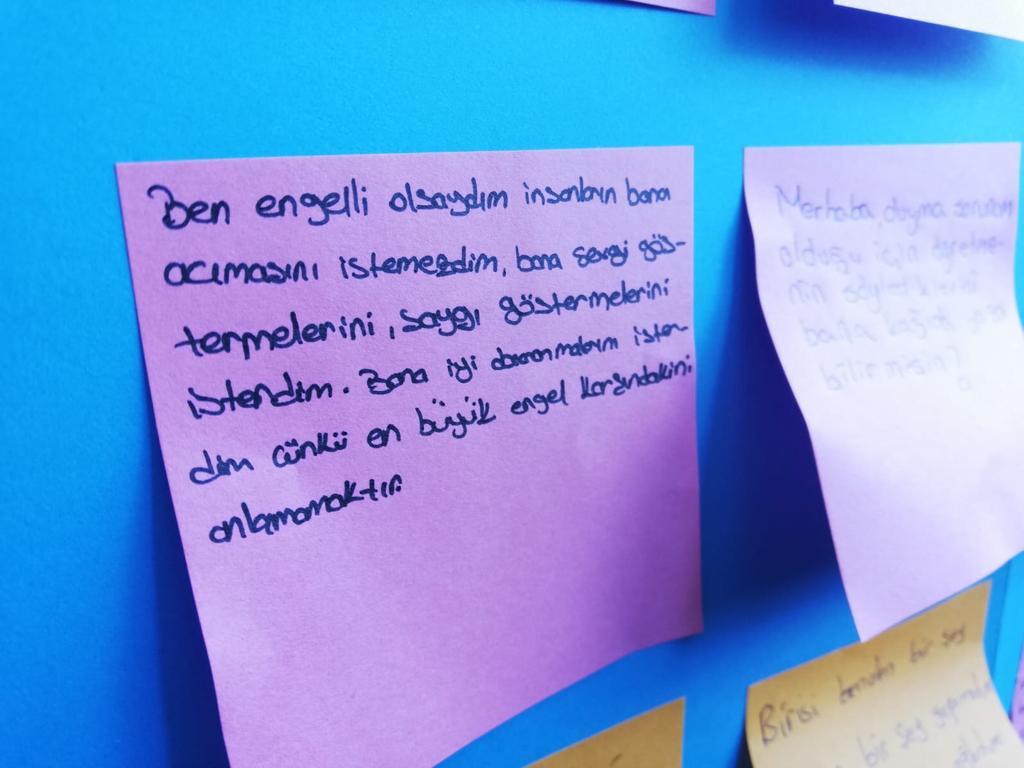 Ben engelli olsaydım insanların bana
acımasını istemezdim, bana sevgi gös-
termelerini, saygı göstermelerini
istendim. Bana iyi davranmalarını isten-
dim çünkü en büyük engel karşındakini
anlamamaktır.
Merhaba, duyma sorunum
olduğu için öğretme-
nin söylediklerini
bana kağıda yaza
bilir misin?
Birisi benden bir şey
bir şey yapmamı